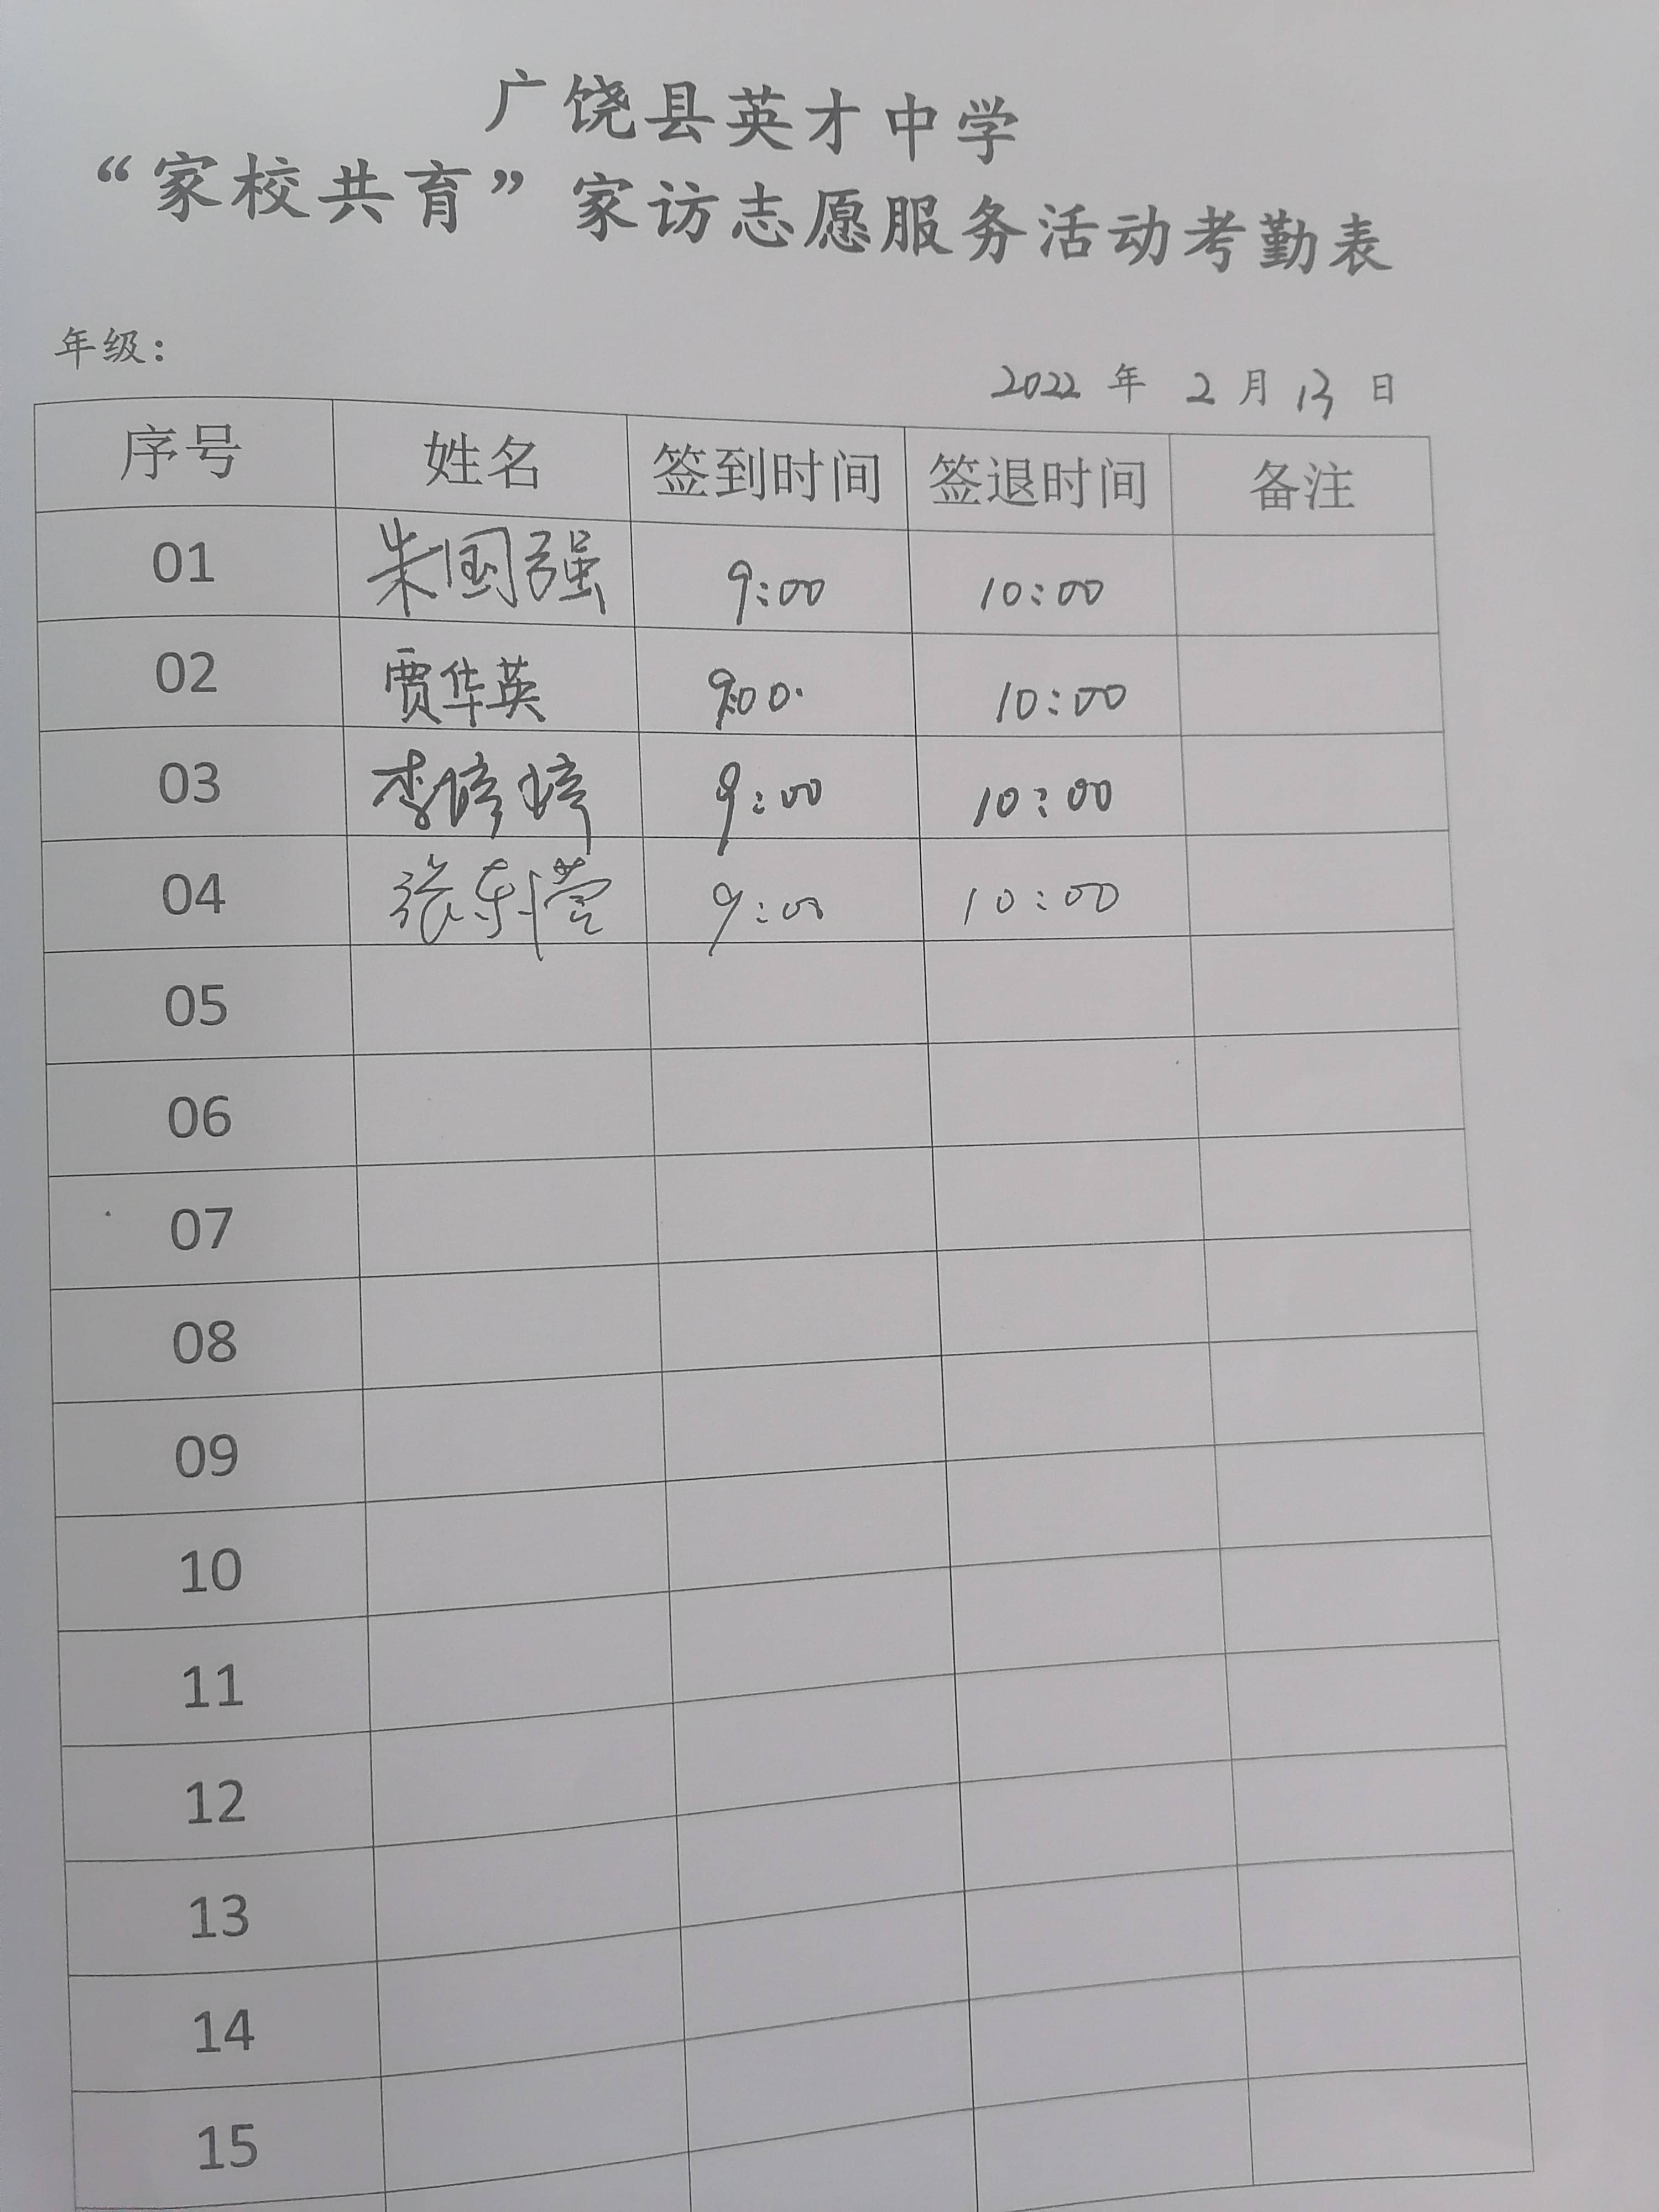 广饶县英才中学
“家校共育”家访志愿服务活动考勤表
年级：
2022 年 2 月 13 日
序号 姓名 签到时间 签退时间 备注
01 朱国强 9:00 10:00
02 贾华英 9:00. 10:00
03 李婷婷 9:00 10:00
04 张东营 9:00 10:00
05
06
07
08
09
10
11
12
13
14
15